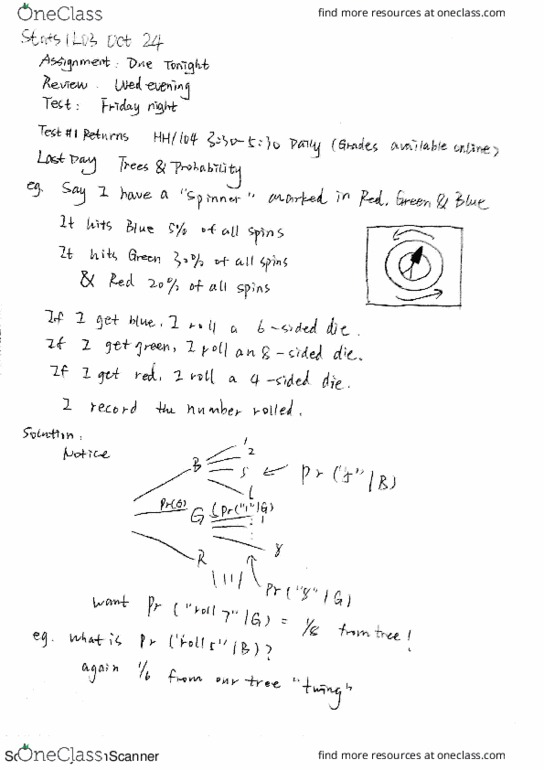 OneClass find more resources at oneclass.com
Stats 1L03 Oct 24
Assignment: Due Tonight
Review: Wed evening
Test: Friday night
Test #1 Returns HH/104 3:30-5:30 Daily (Grades available online)
Last Day Trees & Probability
eg. Say I have a "spinner" marked in Red, Green & Blue
It hits Blue 5% of all spins
It hits Green 30% of all spins
& Red 20% of all spins
If I get blue, I roll a 6-sided die.
If I get green, I roll an 8-sided die.
If I get red, I roll a 4-sided die.
I record the number rolled.
Solution:
Notice
1
2
B 5 Pr("5"|B)
Pr(G) G Pr("1"|G) 1
8
R
Pr("8"|G)
want Pr("roll 7"|G) = 1/8 from tree!
eg. what is Pr("roll 5"|B)?
again 1/6 from our tree "twing"
OneClass Scanner find more resources at oneclass.com